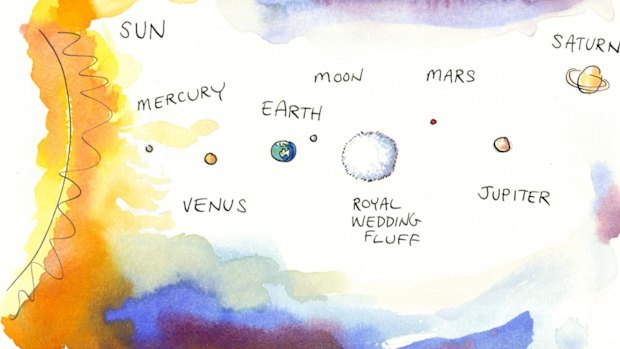 SUN
MERCURY
VENUS
EARTH
MOON
ROYAL
WEDDING
FLUFF
MARS
JUPITER
SATURN